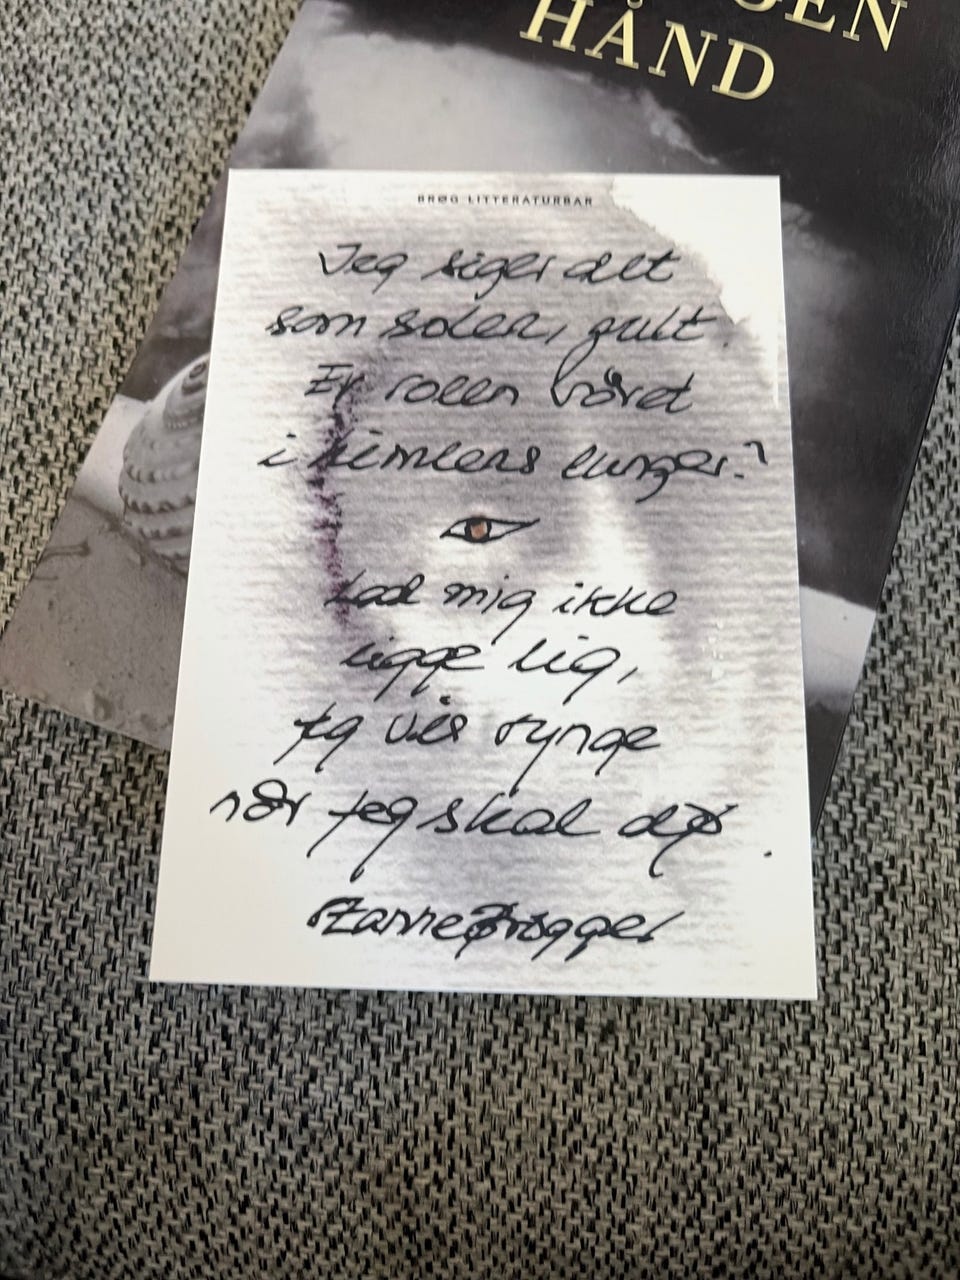 GEN
HÅND
BRØG LITTERATURBAR
Jeg siger det
som solen, gult.
Er solen såret
i himlens lunger?
Lad mig ikke
ligge lig,
jeg vil synge
når jeg skal dø.
Suzanne Brøgger